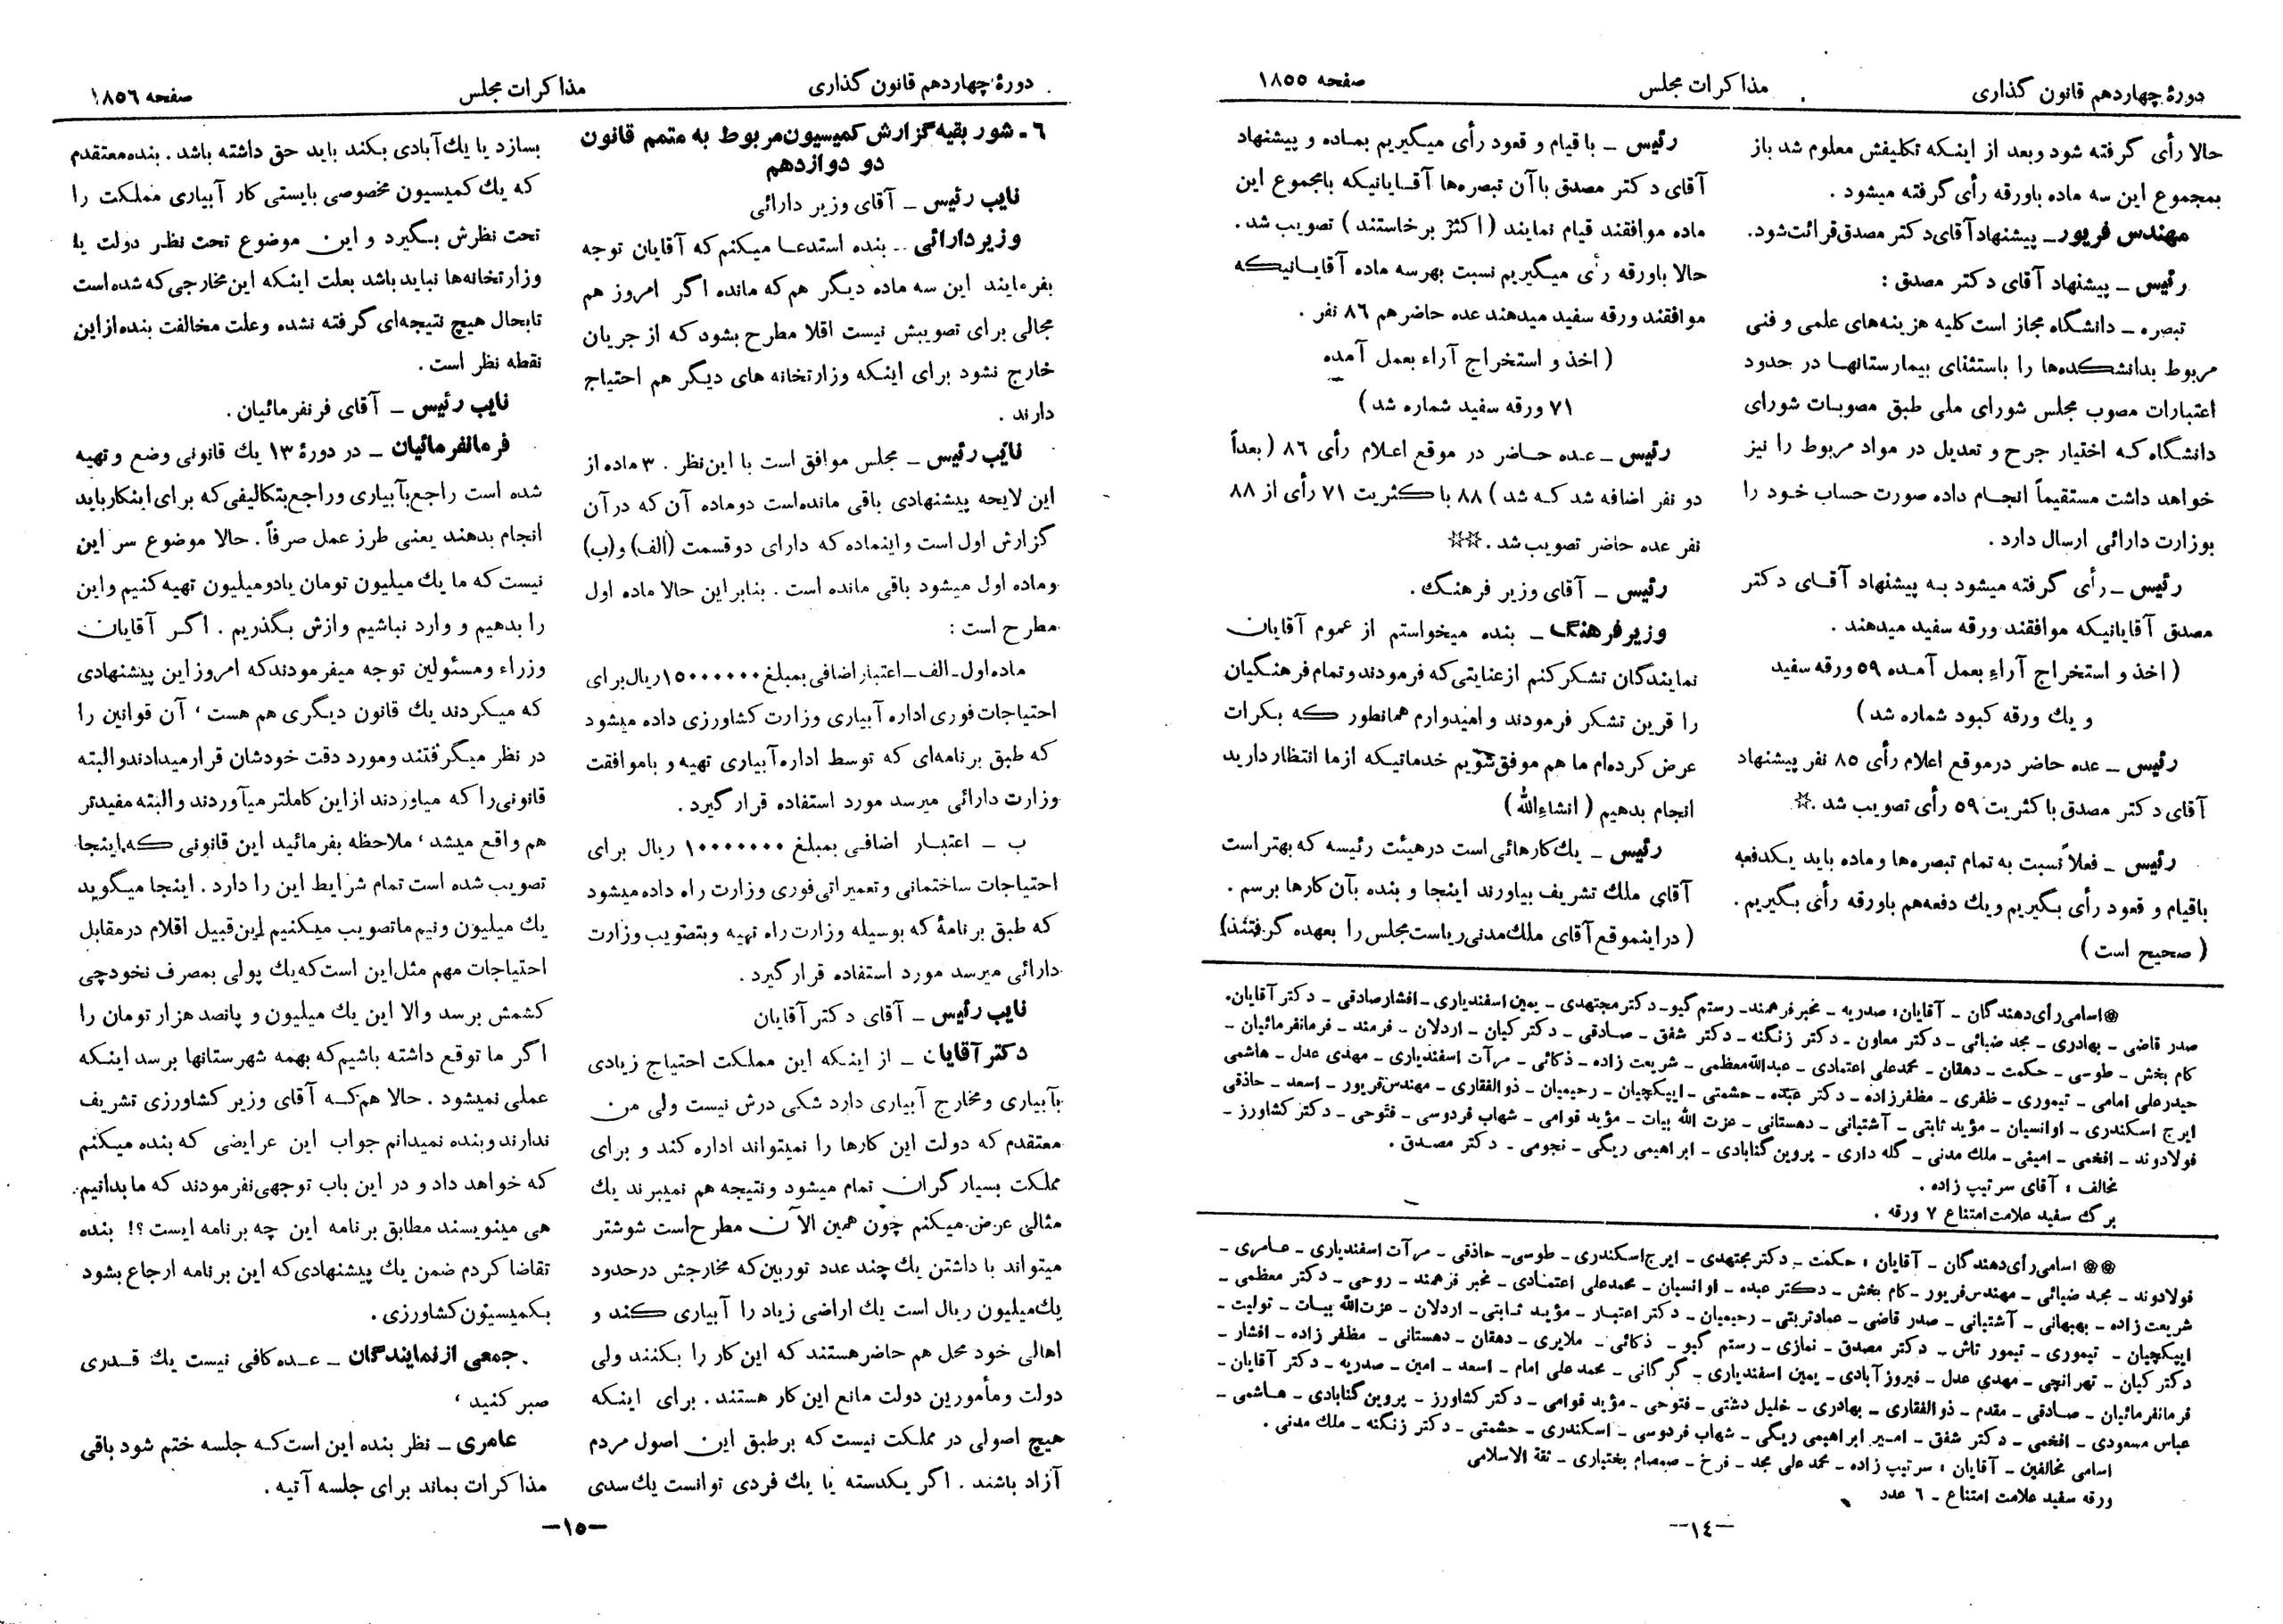 دورهٔ چهاردهم قانون گذاری
مذاکرات مجلس
صفحه ۱۸۵۵
حالا رأی گرفته شود وبعد از اینکه تکلیفش معلوم شد باز
بمجموع این سه ماده باورقه رأی گرفته میشود .
مهندس فریور ـ پیشنهاد آقای دکتر مصدق قرائت شود.
رئیس ـ پیشنهاد آقای دکتر مصدق :
تبصره ـ دانشگاه مجاز است کلیه هزینه‌های علمی و فنی
مربوط بدانشکده‌ها را باستثنای بیمارستانها در حدود
اعتبارات مصوب مجلس شورای ملی طبق مصوبات شورای
دانشگاه که اختیار جرح و تعدیل در مواد مربوط را نیز
خواهد داشت مستقیماً انجام داده صورت حساب خود را
بوزارت دارائی ارسال دارد .
رئیس ـ رأی گرفته میشود به پیشنهاد آقای دکتر
مصدق آقایانیکه موافقند ورقه سفید میدهند .
( اخذ و استخراج آراء بعمل آمده ۵۹ ورقه سفید
و یك ورقه کبود شماره شد )
رئیس ـ عده حاضر درموقع اعلام رأی ۸۵ نفر پیشنهاد
آقای دکتر مصدق باکثریت ۵۹ رأی تصویب شد .☆
رئیس ـ فعلاً نسبت به تمام تبصره‌ها وماده باید یکدفعه
باقیام و قعود رأی بگیریم ویك دفعه‌هم باورقه رأی بگیریم .
( صحیح است )
رئیس ـ با قیام و قعود رأی میگیریم بماده و پیشنهاد
آقای دکتر مصدق باآن تبصره‌ها آقایانیکه بامجموع این
ماده موافقند قیام نمایند ( اکثر برخاستند ) تصویب شد.
حالا باورقه رأی میگیریم نسبت بهرسه ماده آقایانیکه
موافقند ورقه سفید میدهند عده حاضرهم ۸۶ نفر .
( اخذ و استخراج آراء بعمل آمده
۷۱ ورقه سفید شماره شد )
رئیس ـ عده حاضر در موقع اعلام رأی ۸۶ ( بعداً
دو نفر اضافه شد که شد ) ۸۸ باکثریت ۷۱ رأی از ۸۸
نفر عده حاضر تصویب شد .☆☆
رئیس ـ آقای وزیر فرهنگ .
وزیر فرهنگ ـ بنده میخواستم از عموم آقایان
نمایندگان تشکر کنم ازعنایتی که فرمودند وتمام فرهنگیان
را قرین تشکر فرمودند و امیدوارم همانطور که بکرات
عرض کرده‌ام ما هم موفق شویم خدماتیکه ازما انتظار دارید
انجام بدهیم ( انشاءالله )
رئیس ـ یك کارهائی است درهیئت رئیسه که بهتراست
آقای ملك تشریف بیاورند اینجا و بنده بآن کارها برسم .
( دراینموقع آقای ملك مدنی ریاست مجلس را بعهده گرفتند)
☆اسامی رأی دهندگان ـ آقایان: صدریه ـ مخبرفرهمند ـ رستم گیو ـ دکترمجتهدی ـ یمین اسفندیاری ـ افشارصادقی ـ دکتر آقایان.
صدر قاضی ـ بهادری ـ مجد ضیائی ـ دکتر معاون ـ دکتر زنگنه ـ دکتر شفق ـ صادقی ـ دکتر کیان ـ اردلان ـ فرمند ـ فرمانفرمائیان ـ
کام بخش ـ طوسی ـ حکمت ـ دهقان ـ محمدعلی اعتمادی ـ عبدالله معظمی ـ شریعت زاده ـ ذکائی ـ مرآت اسفندیاری ـ مهدی عدل ـ هاشمی
حیدرعلی امامی ـ تیموری ـ ظفری ـ مظفرزاده ـ دکتر عبده ـ حشمتی ـ ایپکچیان ـ رحیمیان ـ ذوالفقاری ـ مهندس فریور ـ اسعد ـ حاذقی
ایرج اسکندری ـ اوانسیان ـ مؤید ثابتی ـ آشتیانی ـ دهستانی ـ عزت الله بیات ـ مؤید قوامی ـ شهاب فردوسی ـ فتوحی ـ دکتر کشاورز ـ
فولادوند ـ افخمی ـ امینی ـ ملك مدنی ـ گله داری ـ پروین گنابادی ـ ابراهیمی ریگی ـ نجومی ـ دکتر مصدق .
مخالف : آقای سرتیپ زاده .
برگ سفید علامت امتناع ۷ ورقه .
☆☆ اسامی رأی دهندگان ـ آقایان : حکمت ـ دکتر مجتهدی ـ ایرج اسکندری ـ طوسی ـ حاذقی ـ مرآت اسفندیاری ـ عامری ـ
فولادوند ـ مجد ضیائی ـ مهندس فریور ـ کام بخش ـ دکتر عبده ـ اوانسیان ـ محمدعلی اعتمادی ـ مخبر فرهمند ـ روحی ـ دکتر معظمی ـ
شریعت زاده ـ بهبهانی ـ آشتیانی ـ صدر قاضی ـ عمادتربتی ـ رحیمیان ـ دکتر اعتبار ـ مؤید ثابتی ـ اردلان ـ عزت‌الله بیات ـ تولیت ـ
ایپکچیان ـ تیموری ـ تیمور تاش ـ دکتر مصدق ـ نمازی ـ رستم گیو ـ ذکائی ـ ملایری ـ دهقان ـ دهستانی ـ مظفر زاده ـ افشار ـ
دکتر کیان ـ تهرانچی ـ مهدی عدل ـ فیروزآبادی ـ یمین اسفندیاری ـ گرگانی ـ محمد علی امام ـ اسعد ـ امین ـ صدریه ـ دکتر آقایان ـ
فرمانفرمائیان ـ صادقی ـ مقدم ـ ذوالفقاری ـ بهادری ـ خلیل دشتی ـ فتوحی ـ مؤید قوامی ـ دکتر کشاورز ـ پروین گنابادی ـ هاشمی ـ
عباس مسعودی ـ افخمی ـ دکتر شفق ـ امیر ابراهیمی ریگی ـ شهاب فردوسی ـ اسکندری ـ حشمتی ـ دکتر زنگنه ـ ملك مدنی .
اسامی مخالفین ـ آقایان : سرتیپ زاده ـ محمد علی مجد ـ فرخ ـ صمصام بختیاری ـ ثقة الاسلامی
ورقه سفید علامت امتناع ـ ٦ عدد
ـ۱٤ـ
دورهٔ چهاردهم قانون گذاری
مذاکرات مجلس
صفحه ۱۸۵٦
٦ ـ شور بقیه گزارش کمیسیون مربوط به متمم قانون
دو دوازدهم
نایب رئیس ـ آقای وزیر دارائی
وزیر دارائی ـ بنده استدعا میکنم که آقایان توجه
بفرمایند این سه ماده دیگر هم که مانده اگر امروز هم
مجالی برای تصویبش نیست اقلا مطرح بشود که از جریان
خارج نشود برای اینکه وزارتخانه های دیگر هم احتیاج
دارند .
نایب رئیس ـ مجلس موافق است با این نظر . ۳ ماده از
این لایحه پیشنهادی باقی مانده‌است دوماده آن که درآن
گزارش اول است و اینماده که دارای دو قسمت (الف) و (ب)
وماده اول میشود باقی مانده است . بنابراین حالا ماده اول
مطرح است :
ماده اول ـ الف ـ اعتبار اضافی بمبلغ ۱۵۰۰۰۰۰۰ ریال برای
احتیاجات فوری اداره آبیاری وزارت کشاورزی داده میشود
که طبق برنامه‌ای که توسط اداره آبیاری تهیه و باموافقت
وزارت دارائی میرسد مورد استفاده قرار گیرد .
ب ـ اعتبار اضافی بمبلغ ۱۰۰۰۰۰۰۰ ریال برای
احتیاجات ساختمانی و تعمیراتی فوری وزارت راه داده میشود
که طبق برنامهٔ که بوسیله وزارت راه تهیه وبتصویب وزارت
دارائی میرسد مورد استفاده قرار گیرد .
نایب رئیس ـ آقای دکتر آقایان
دکتر آقایان ـ از اینکه این مملکت احتیاج زیادی
بآبیاری ومخارج آبیاری دارد شکی درش نیست ولی من
معتقدم که دولت این کارها را نمیتواند اداره کند و برای
مملکت بسیار گران تمام میشود ونتیجه هم نمیبرند یك
مثالی عرض میکنم چون همین الآن مطرح است شوشتر
میتواند با داشتن یك چند عدد توربین که مخارجش درحدود
یك میلیون ریال است یك اراضی زیاد را آبیاری کند و
اهالی خود محل هم حاضر هستند که این کار را بکنند ولی
دولت ومأمورین دولت مانع این کار هستند . برای اینکه
هیچ اصولی در مملکت نیست که بر طبق این اصول مردم
آزاد باشند . اگر یکدسته یا یك فردی توانست یك سدی
بسازد یا یك آبادی بکند باید حق داشته باشد . بنده معتقدم
که یك کمیسیون مخصوصی بایستی کار آبیاری مملکت را
تحت نظرش بگیرد و این موضوع تحت نظر دولت یا
وزارتخانه‌ها نباید باشد بعلت اینکه این مخارجی که شده است
تابحال هیچ نتیجه‌ای گرفته نشده وعلت مخالفت بنده از این
نقطه نظر است .
نایب رئیس ـ آقای فرنفرمائیان .
فرمانفرمائیان ـ در دورهٔ ۱۳ یك قانونی وضع و تهیه
شده است راجع بآبیاری وراجع بتکالیفی که برای اینکار باید
انجام بدهند یعنی طرز عمل صرفاً . حالا موضوع سر این
نیست که ما یك میلیون تومان یادو میلیون تهیه کنیم و این
را بدهیم و وارد نباشیم وازش بگذریم . اگر آقایان
وزراء ومسئولین توجه میفرمودند که امروز این پیشنهادی
که میکردند یك قانون دیگری هم هست ، آن قوانین را
در نظر میگرفتند ومورد دقت خودشان قرار میدادند والبته
قانونی را که میاوردند از این کاملتر میآوردند والبته مفیدتر
هم واقع میشد ، ملاحظه بفرمائید این قانونی که اینجا
تصویب شده است تمام شرایط این را دارد . اینجا میگوید
یك میلیون ونیم ماتصویب میکنیم این قبیل اقلام درمقابل
احتیاجات مهم مثل این است که یك پولی بمصرف نخودچی
کشمش برسد والا این یك میلیون و پانصد هزار تومان را
اگر ما توقع داشته باشیم که بهمه شهرستانها برسد اینکه
عملی نمیشود . حالا هم که آقای وزیر کشاورزی تشریف
ندارند وبنده نمیدانم جواب این عرایضی که بنده میکنم
که خواهد داد و در این باب توجهی نفرمودند که ما بدانیم.
هی مینویسند مطابق برنامه این چه برنامه ایست ؟! بنده
تقاضا کردم ضمن یك پیشنهادی که این برنامه ارجاع بشود
بکمیسیون کشاورزی .
جمعی از نمایندگان ـ عده کافی نیست یك قدری
صبر کنید ،
عامری ـ نظر بنده این است که جلسه ختم شود باقی
مذاکرات بماند برای جلسه آتیه .
ـ۱۵ـ